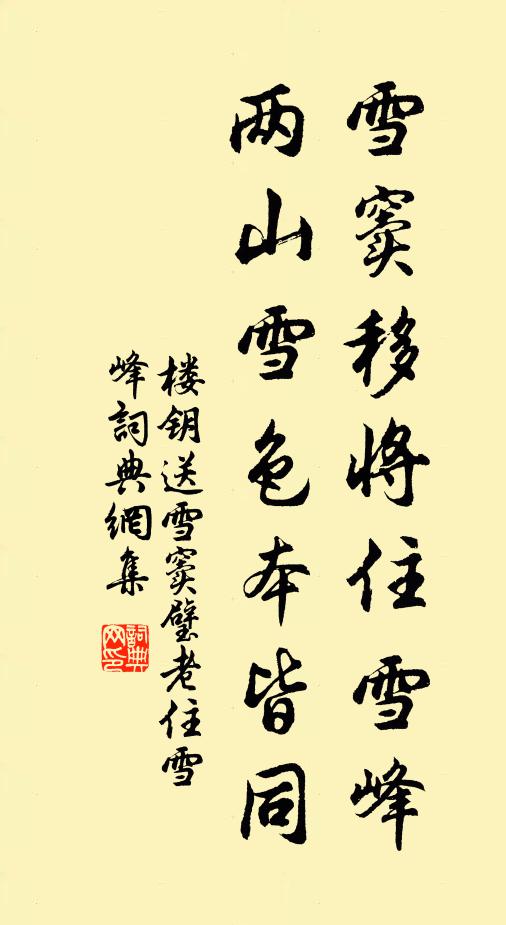 雪窦移将住雪峰
两山雪色本皆同
楼钥送雪窦璧老住雪
峰詞典網集
詞典
网印